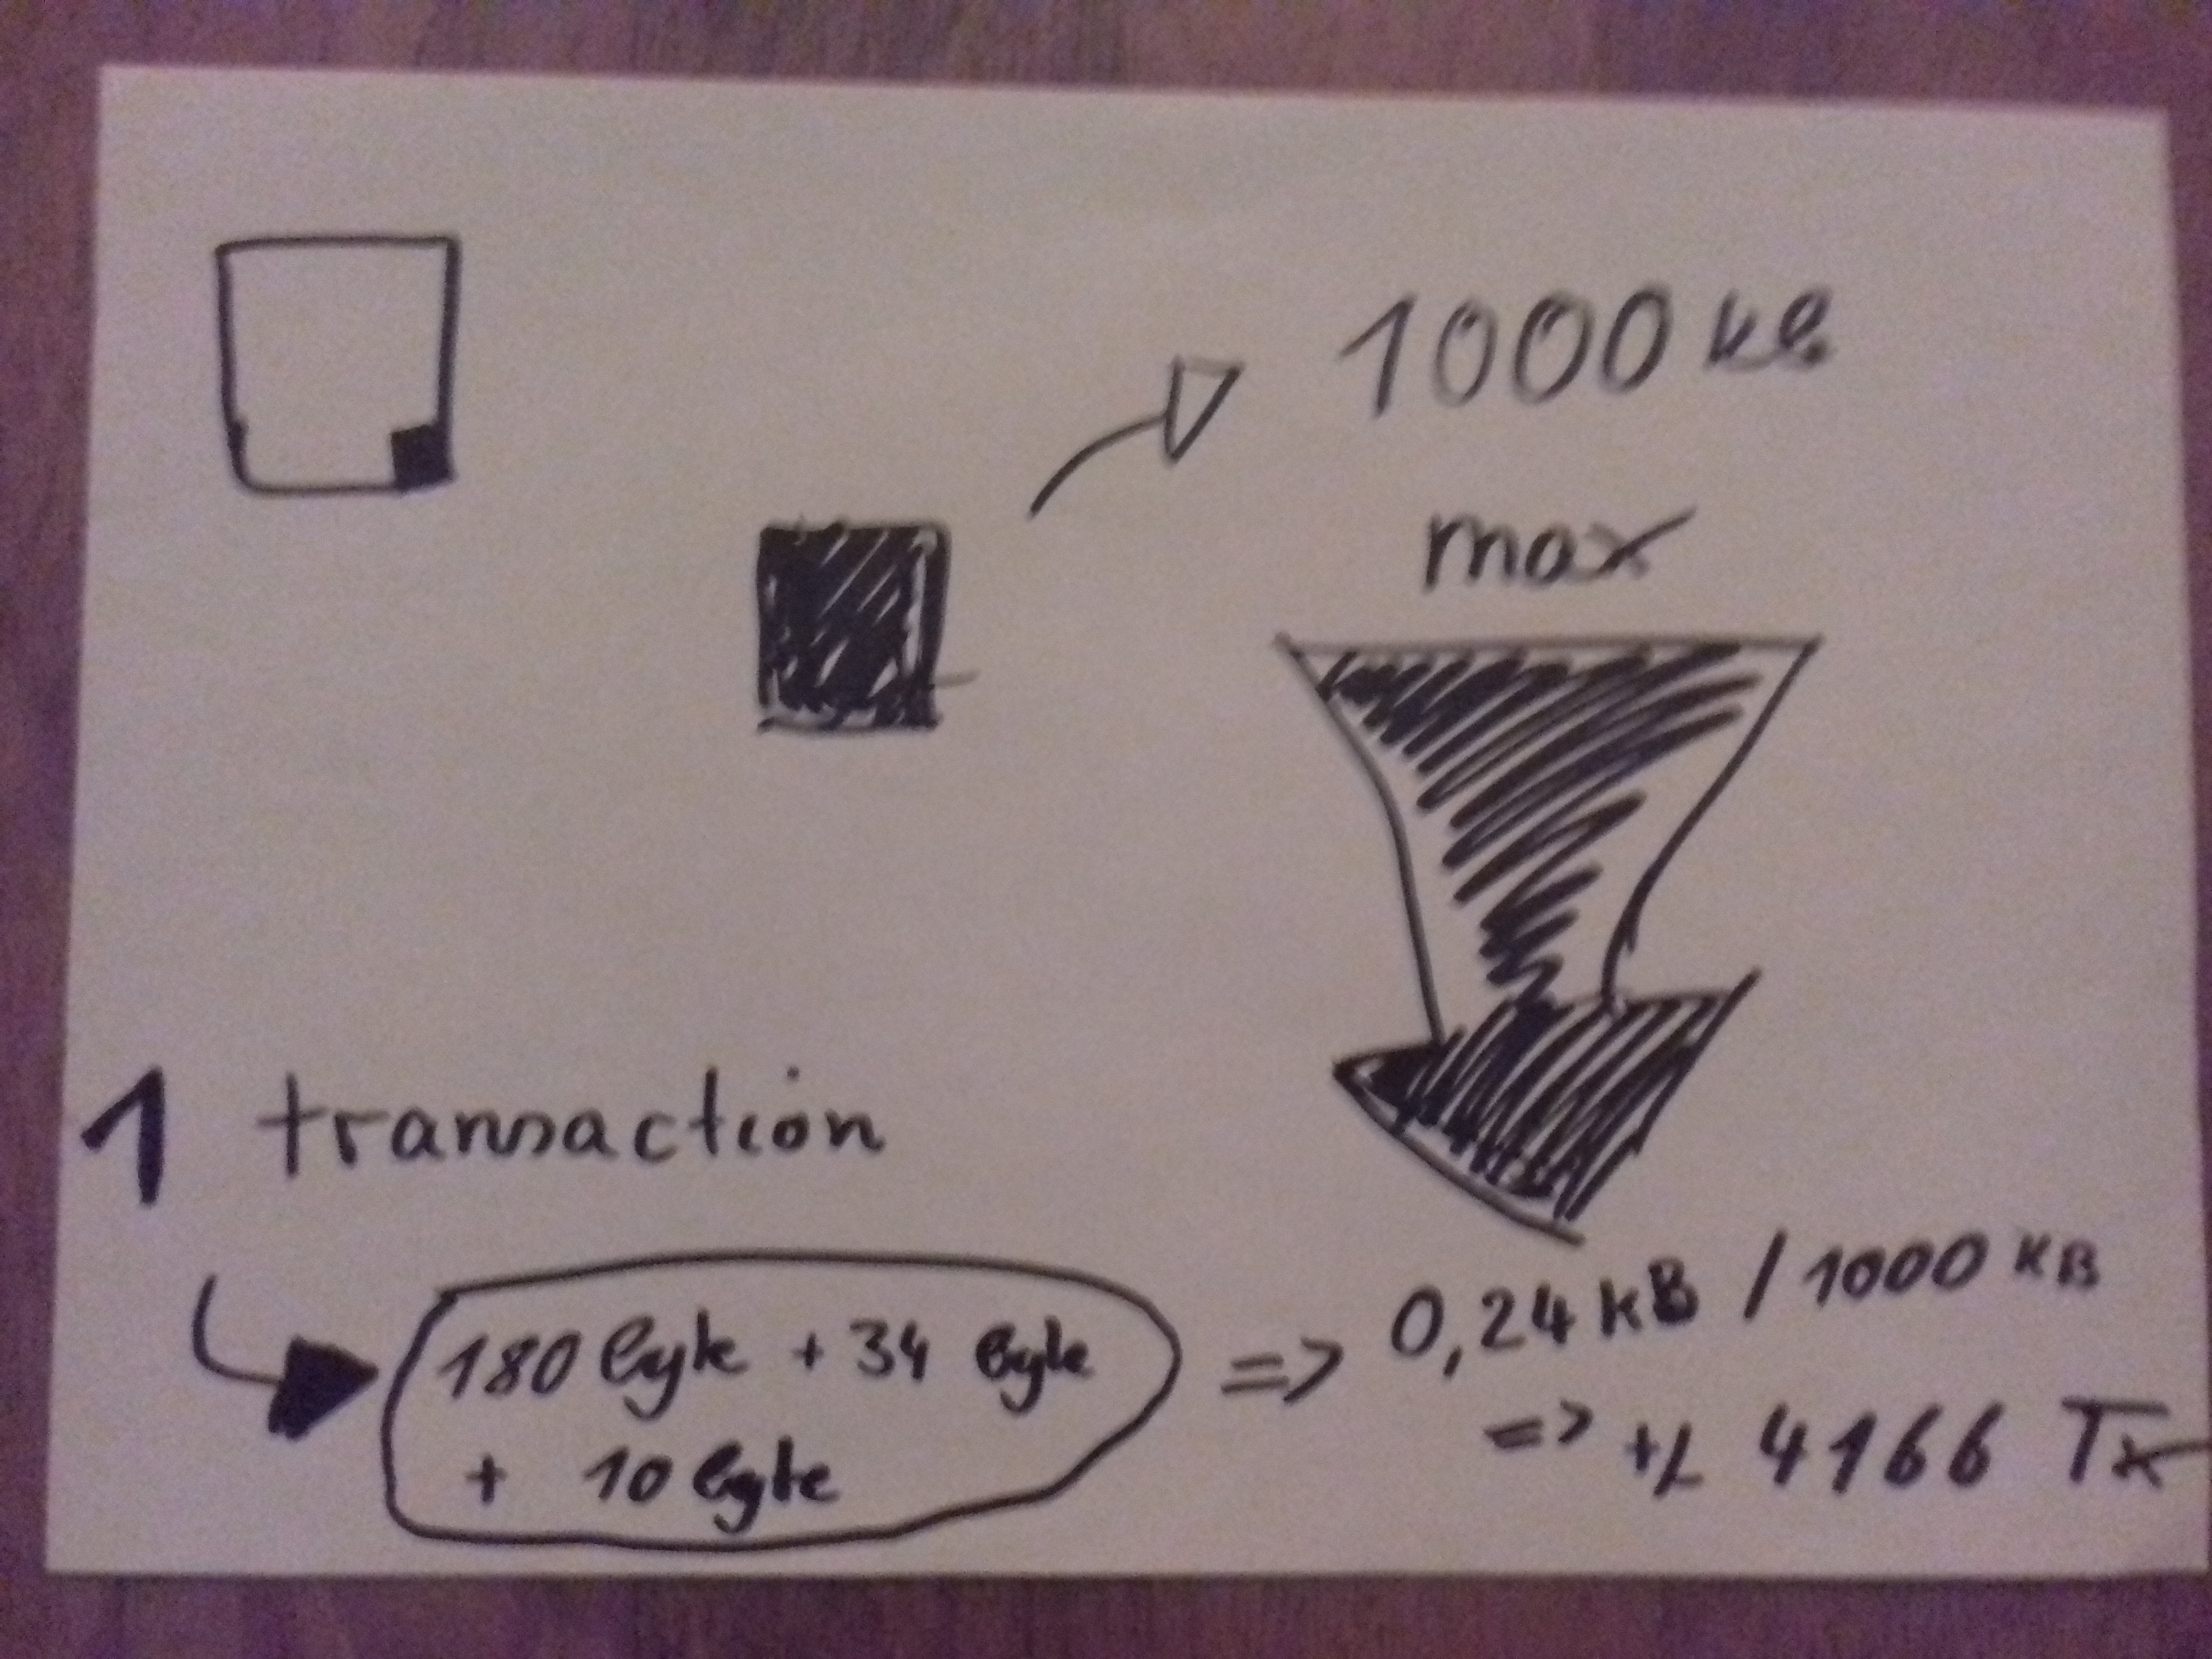 1000 kB
max
1 transaction
180 Byte + 34 Byte
+ 10 Byte
=> 0,24 kB / 1000 KB
=> +/- 4166 Tx